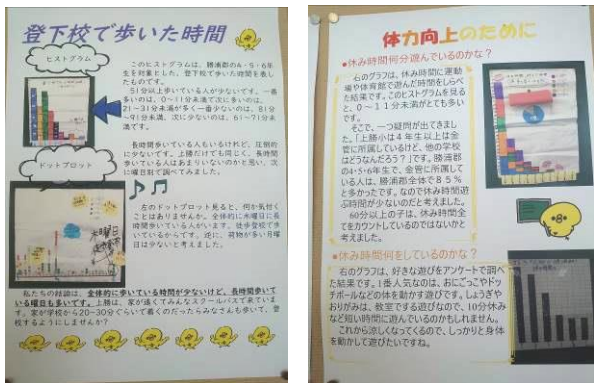 登下校で歩いた時間
ヒストグラム
このヒストグラムは、勝浦郡の4・5・6年
生を対象とした、登下校で歩いた時間を表し
たものです。
51分以上歩いている人が少ないです。一番
多いのは、0~11分未満で次に多いのは、
21~31分未満が多く一番少ないのは、81分
~91分未満、次に少ないのは、61~71分未
満です。
長時間歩いている人もいるけれど、圧倒
的に少ないです。上勝だけでも同じく、長時間
歩いている人はあまりいないのかと思い、次
に曜日別で調べてみました。
ドットプロット
左のドットプロット見ると、何か気付く
ことはありませんか。全体的に水曜日に長時
間歩いている人がいます。徒歩登校で歩
いているからです。逆に、荷物が多い月曜
日は少ないと考えました。
私たちの結論は、全体的に歩いている時間が少ないけど、長時間歩いて
いる曜日も多いです。上勝は、家が遠くてみんなスクールバスで来ていま
す。家が学校から20~30分ぐらいで着くのだったらみなさんも歩いて、登
校するようにしませんか?
体力向上のために
●休み時間何分遊んでいるのかな?
右のグラフは、休み時間に運動
場や体育館で遊んだ時間をしらべ
た結果です。このヒストグラムを見る
と、0~11分未満がとても多い
です。
そこで、一つ疑問が出てきまし
た。「上勝小は4年生以上は全員
金管に所属しているけど、他の学校
はどうなんだろう?」です。勝浦郡
の4・5・6年生で、金管に所属して
いる人は、勝浦郡全体で85%
と多かったです。なので休み時間遊
ぶ時間が少ないのだと考えました。
60分以上の子は、休み時間全
てをカウントしているのではないかと
考えました。
●休み時間何をしているのかな?
右のグラフは、好きな遊びをアンケートで調べ
た結果です。1番人気なのは、おにごっこやドッ
チボールなどの体を動かす遊びです。しょうぎや
おりがみは、教室でする遊びなので、10分休み
など短い時間に遊んでいるのかもしれません。
これから涼しくなってくるので、しっかりと身体
を動かして遊びたいですね。